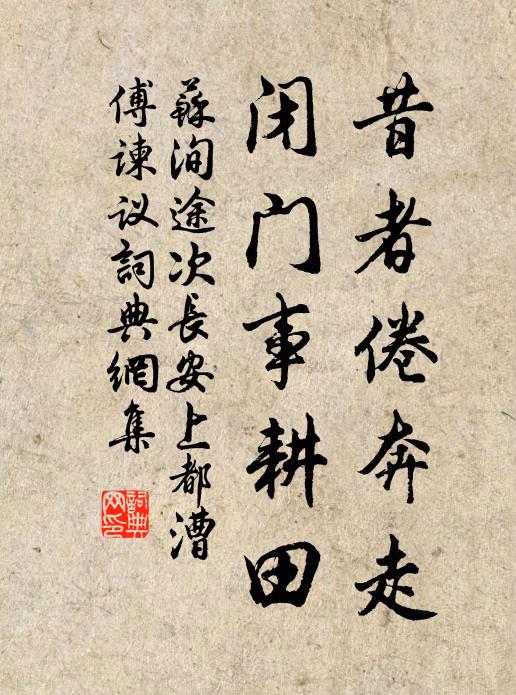 昔者倦奔走
闭门事耕田
蘇洵途次長安上都漕
傅諫议詞典網集
詞典网印